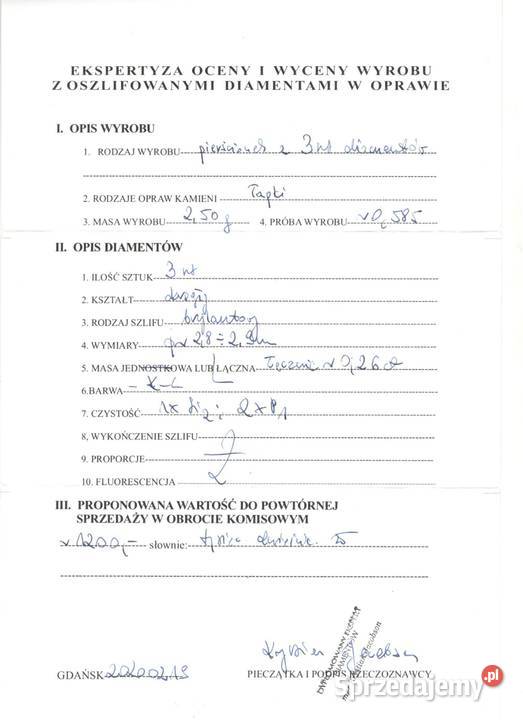 EKSPERTYZA OCENY I WYCENY WYROBU
Z OSZLIFOWANYMI DIAMENTAMI W OPRAWIE
I. OPIS WYROBU
1. RODZAJ WYROBU pierścionek z 3 szt diamentów
2. RODZAJE OPRAW KAMIENI Łapki
3. MASA WYROBU 2,50 g 4. PRÓBA WYROBU 0,585
II. OPIS DIAMENTÓW
1. ILOŚĆ SZTUK 3 szt
2. KSZTAŁT okrągły
3. RODZAJ SZLIFU brylantowy
4. WYMIARY 2,8 ÷ 2,9 mm
5. MASA JEDNOSTKOWA LUB ŁĄCZNA Łącznie 0,26 ct
6.BARWA K-L
7. CZYSTOŚĆ 1x Si2 i 2xP1
8. WYKOŃCZENIE SZLIFU
9. PROPORCJE
10. FLUORESCENCJA
III. PROPONOWANA WARTOŚĆ DO POWTÓRNEJ
SPRZEDAŻY W OBROCIE KOMISOWYM
1200,- słownie: tysiąc dwieście zł
GDAŃSK 20200213
PIECZĄTKA I PODPIS RZECZOZNAWCY
Sprzedajemy.pl